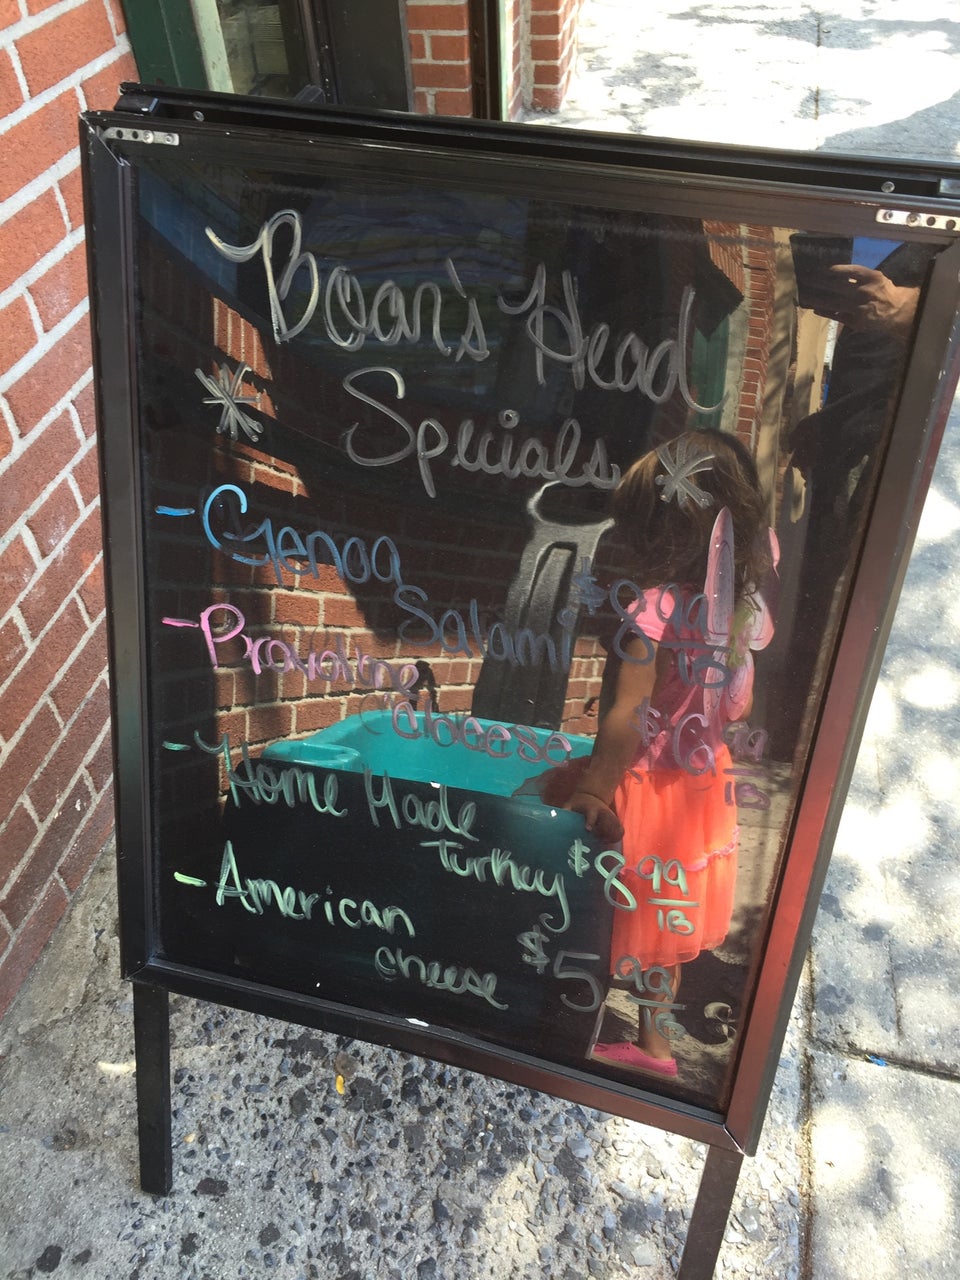 Boar's Head
Specials
- Genoa
Salami $8.99/lB
- Provolone
cheese $6.99/lB
- Home Made
Turkey $8.99/lB
- American
cheese $5.99/lB